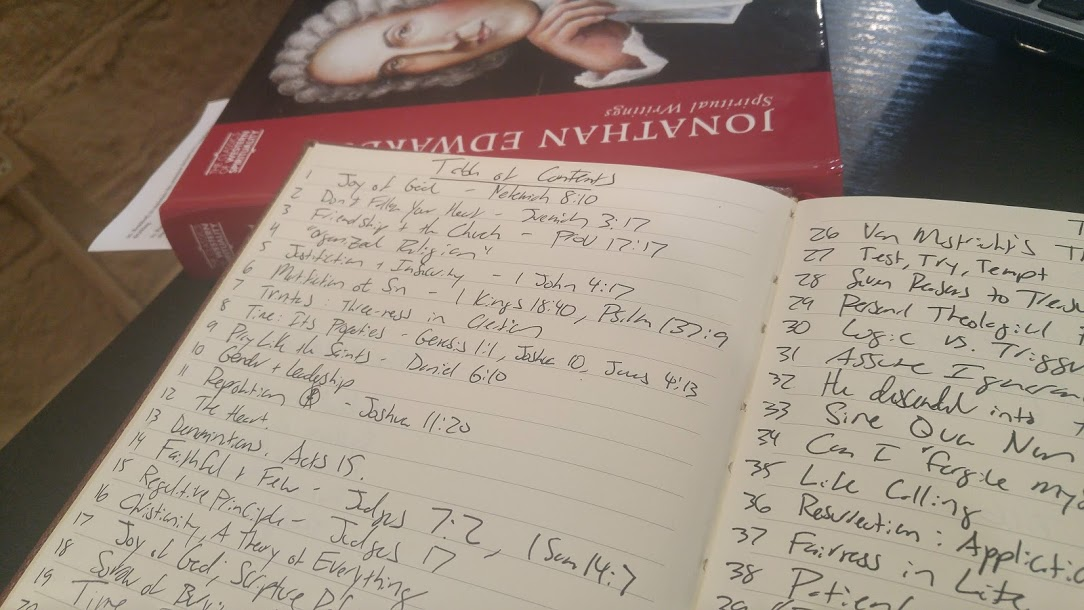 JONATHAN EDWARDS
Spiritual Writings
Table of Contents
1 Joy of God - Nehemiah 8:10
2 Don't Follow Your Heart - Jeremiah 3:17
3 Friendship & the Church - Prov 17:17
4 "Organized Religion"
5 Justification & Insecurity - 1 John 4:17
6 Mortification of Sin - 1 Kings 18:40, Psalm 137:9
7 Trinitas: Three-ness in Creation
8 Time: Its Properties - Genesis 1:1, Joshua 10, James 4:13
9 Pray Like the Saints - Daniel 6:10
10 Gender + Leadership
11 Reprobation - Joshua 11:20
12 The Heart.
13 Denominations, Acts 15.
14 Faithful & Few - Judges 7:2, 1 Sam 14:7
15 Regulative Principle - Judges 17
16 Christianity, A Theory of Everything
17 Joy of God; Scripture
18 Sorrow of
19 Time
20
26 Van Mastricht's
27 Test, Try, Tempt
28 Seven Reasons to
29 Personal Theological
30 Logic vs.
31 Assume
32 He descended into
33 Sine Qua Non
34 Can I "forgive
35 Life Calling
36 Resurrection:
37 Fairness in Life
38
39